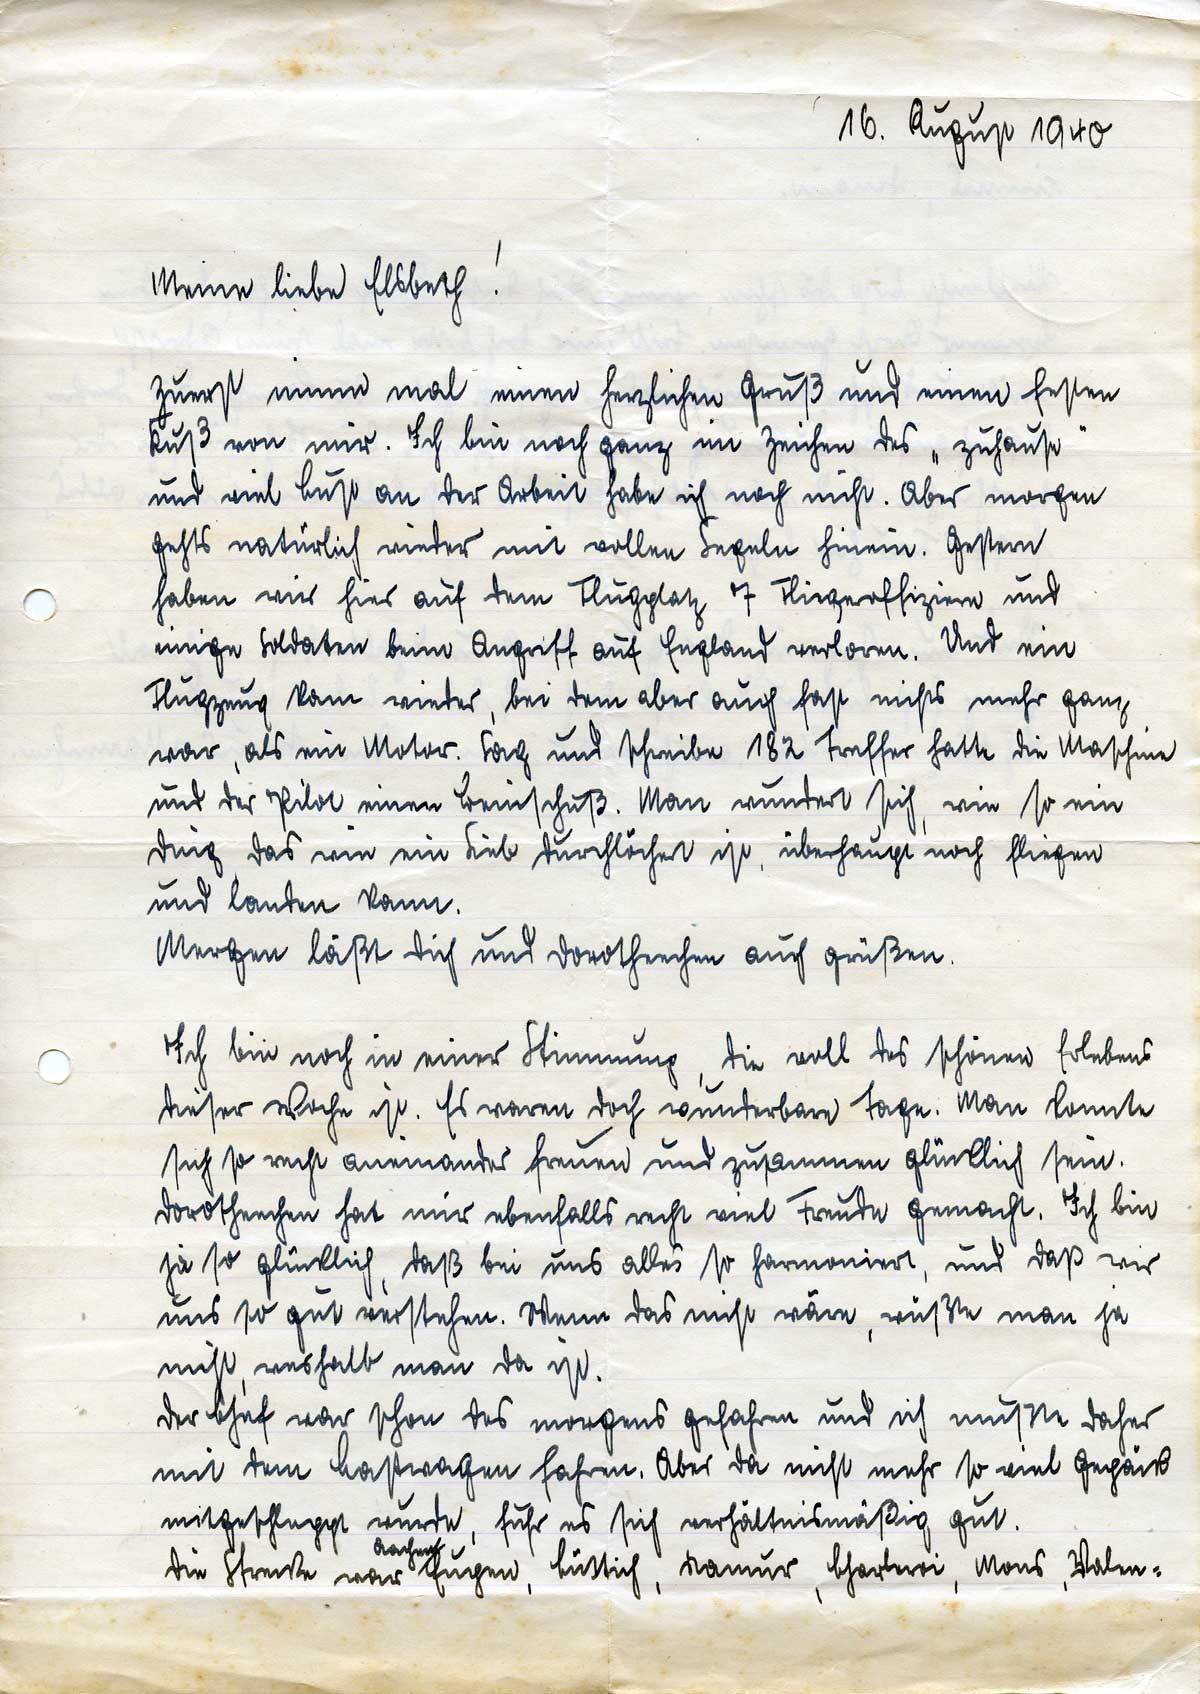 16. August 1940
Meine liebe Elsbeth!
Zuerst nimm mal einen herzlichen Gruß und einen festen
Kuß von mir. Ich bin noch ganz im Zeichen des „zuhause"
und viel Lust an der Arbeit habe ich noch nicht. Aber morgen
gehts natürlich wieder mit vollen Segeln hinein. Gestern
haben wir hier auf dem Flugplatz 7 Fliegeroffiziere und
einige Soldaten beim Angriff auf England verloren. Und ein
Flugzeug kam wieder, bei dem aber auch fast nichts mehr ganz
war, als ein Motor. Sag und schreibe 182 Treffer hatte die Maschine
und der Pilot einen Beinschuß. Man wundert sich, wie so ein
Ding, das wie ein Sieb durchlöchert ist, überhaupt noch fliegen
und landen kann.
Mergen läßt Dich und Dorotheechen auch grüßen.
Ich bin noch in einer Stimmung, die voll des schönen Erlebens
dieser Woche ist. Es waren doch wunderbare Tage. Man konnte
sich so recht aneinander freuen und zusammen glücklich sein.
Dorotheechen hat mir ebenfalls recht viel Freude gemacht. Ich bin
ja so glücklich, daß bei uns alles so harmoniert, und daß wir
uns so gut verstehen. Wenn das nicht wäre, wüßte man ja
nicht, weshalb man da ist.
Der Chef war schon des morgens gefahren und ich mußte daher
mit dem Lastwagen fahren. Aber da nicht mehr so viel Gepäck
mitgeschleppt wurde, fuhr es sich verhältnismäßig gut.
Aachen
Die Strecke war Eupen, Lüttich, Namur, Charleroi, Mons, Valen=